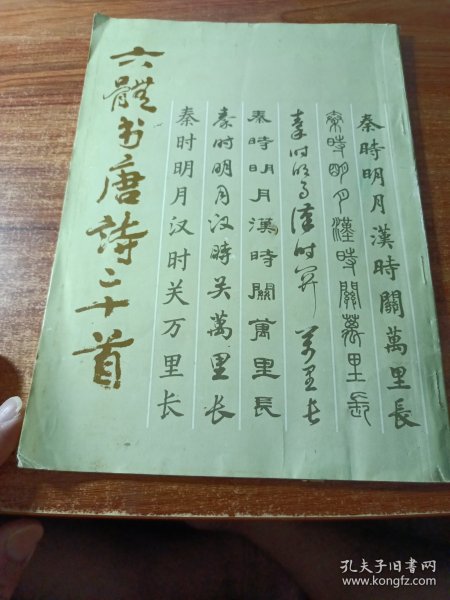 六體书唐詩二十首
秦時明月漢時關萬里長
秦時明月漢時關萬里長
秦时明月漢时关萬里长
秦時明月漢時關萬里長
秦时明月汉時关萬里长
秦时明月汉时关万里长
孔夫子旧书网
www.kongfz.com